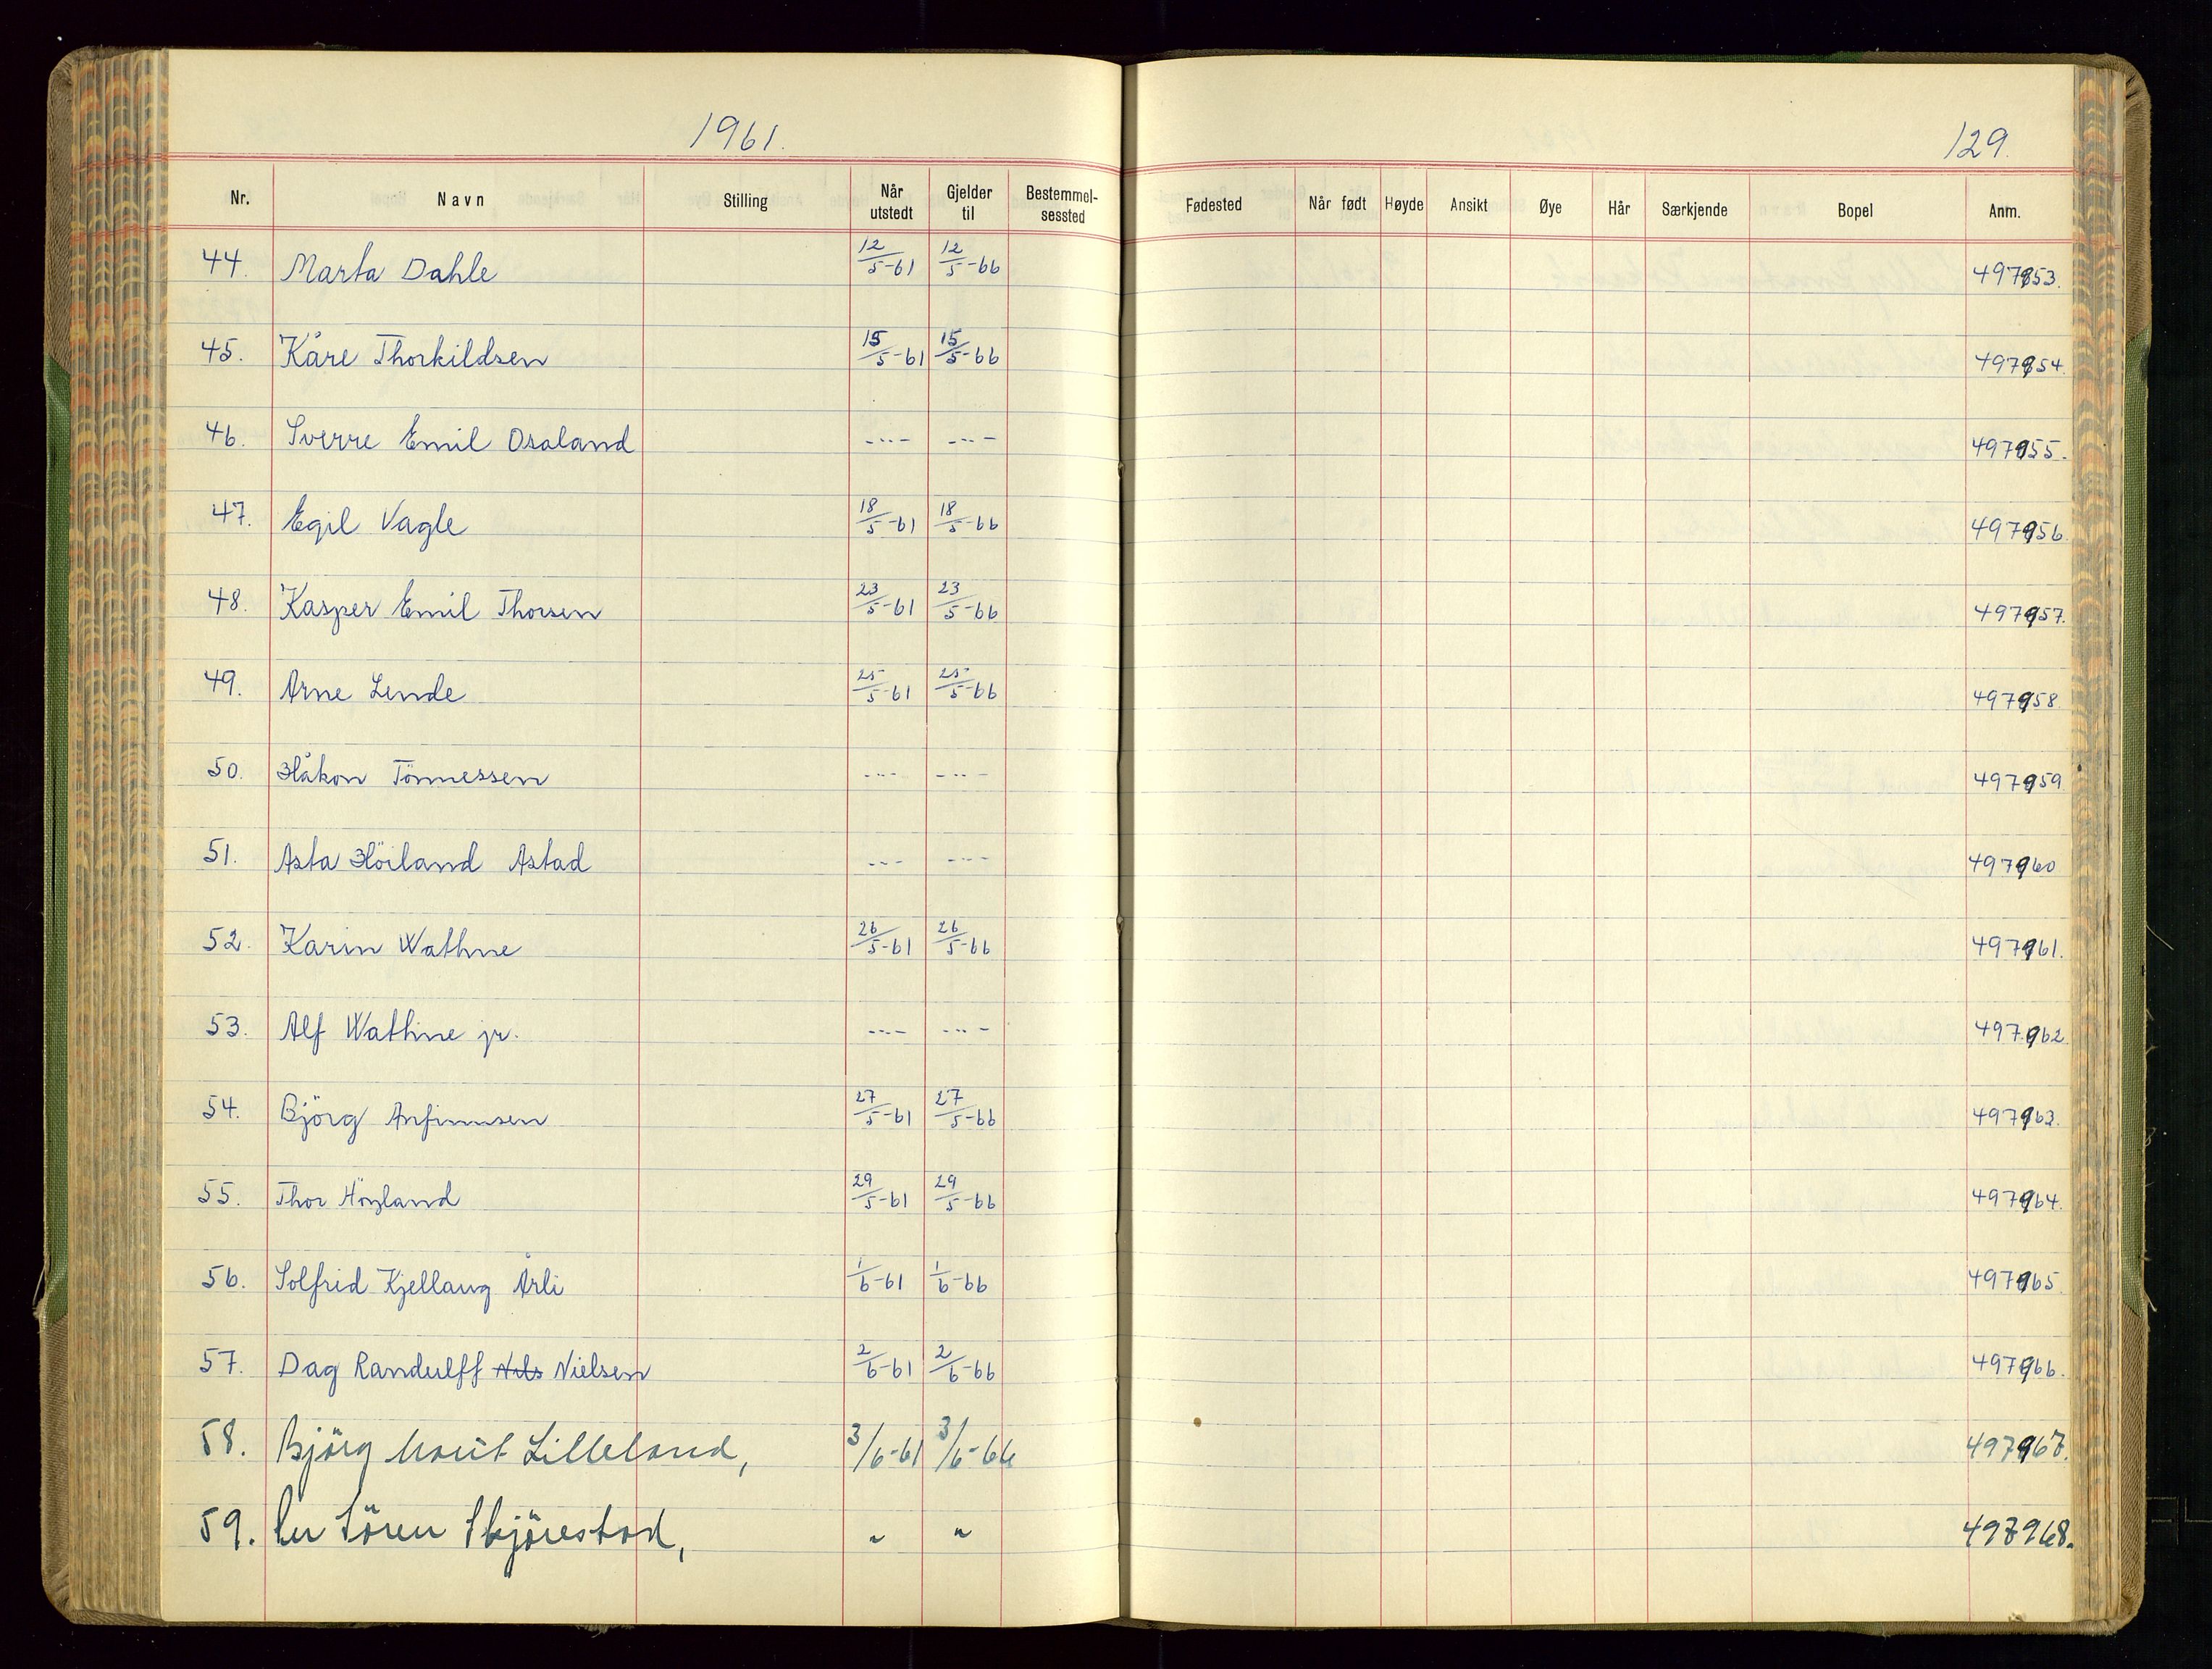 1961.
129.
Nr. Navn Stilling Når utstedt Gjelder til Bestemmel-sessted Fødested Når født Høyde Ansikt Øye Hår Særkjende Bopel Anm.
44. Marta Dahle 12/5-61 12/5-66 497953.
45. Kåre Thorkildsen 15/5-61 15/5-66 497954.
46. Sverre Emil Osaland -"- -"- 497955.
47. Egil Vagle 18/5-61 18/5-66 497956.
48. Kasper Emil Thorsen 23/5-61 23/5-66 497957.
49. Arne Lende 25/5-61 25/5-66 497958.
50. Håkon Tönnessen -"- -"- 497959
51. Asta Höiland Astad -"- -"- 497960
52. Karin Wathne 26/5-61 26/5-66 497961.
53. Alf Wathne jr. -"- -"- 497962
54. Björg Anfinnsen 27/5-61 27/5-66 497963.
55. Thor Höyland 29/5-61 29/5-66 497964.
56. Solfrid Kjellaug Årli 1/6-61 1/6-66 497965.
57. Dag Randulff Nils Nielsen 2/6-61 2/6-66 497966.
58. Björg Marit Lilleland, 3/6-61 3/6-66 497967.
59. Per Sören Skjörestad, " " 497968.